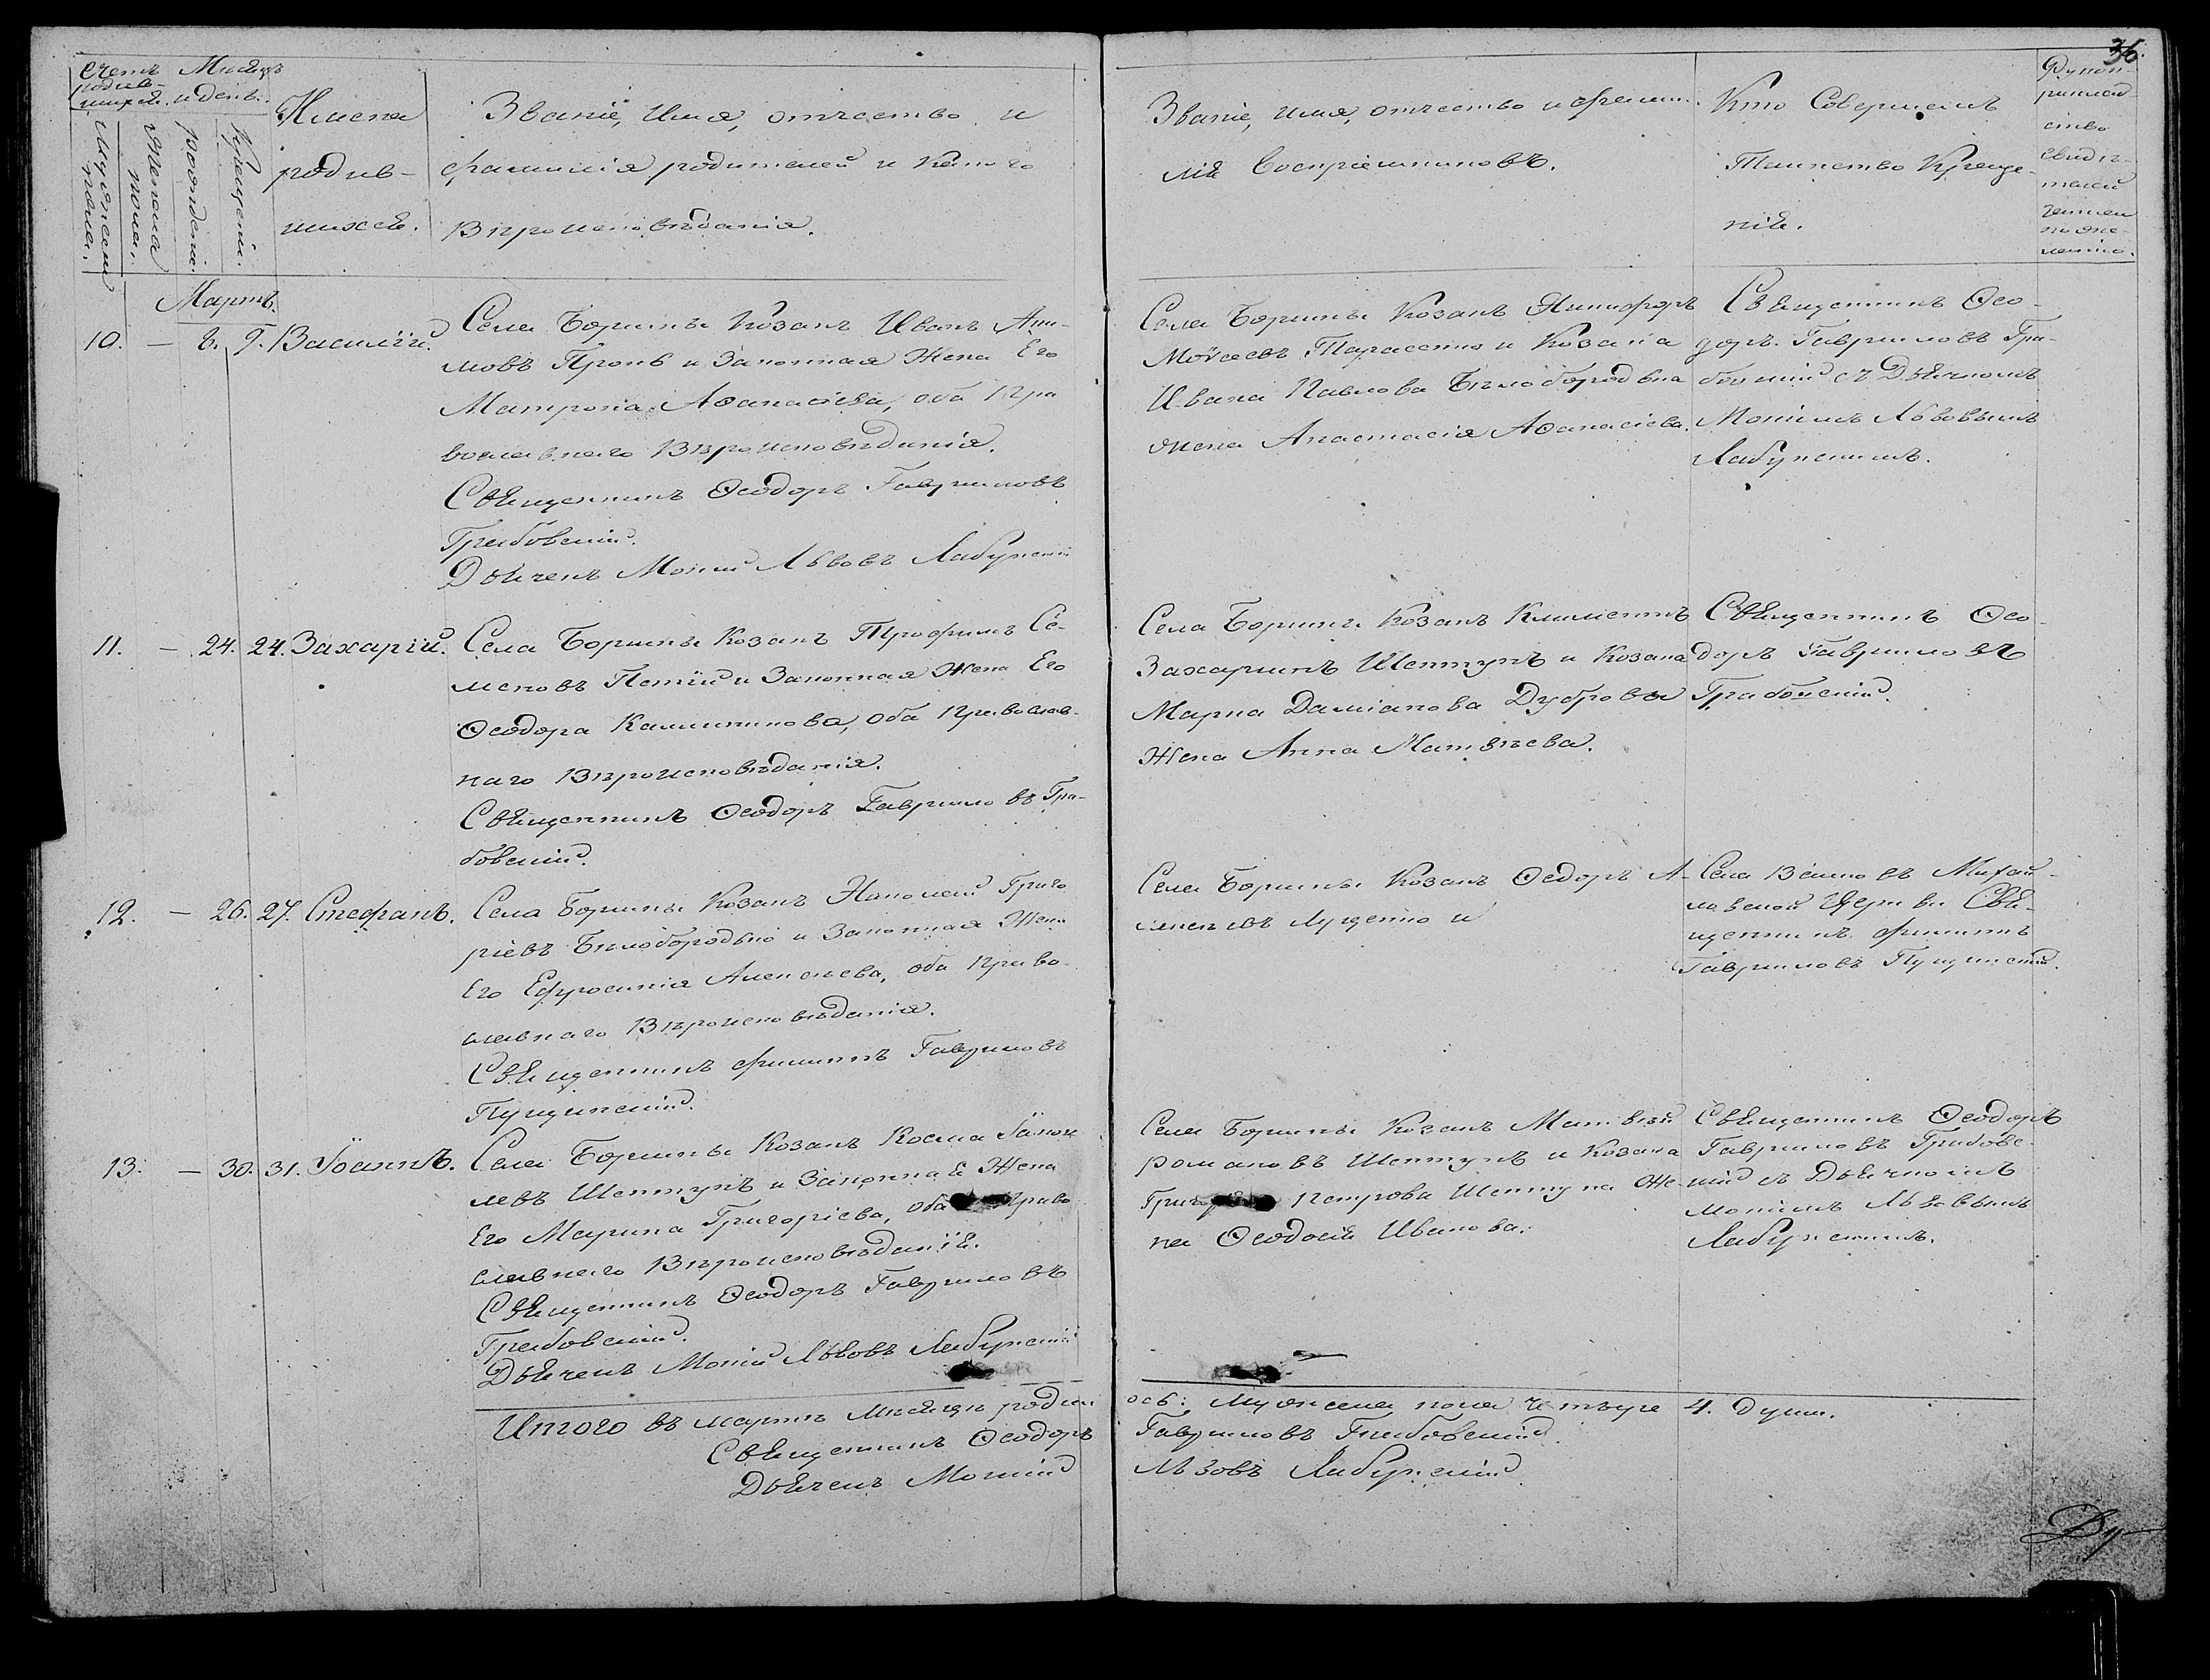 36.
Счетъ родив-
шихся.
Мѣсяцъ
и день.
Мужеска
пола.
Женска
пола.
рожденія.
Крещенія.
Имена
родив-
шихся.
Званіе, Имя, отчество и
фамилія родителей и какого
Вѣроисповѣданія.
Званіе, имя, отчество и фамил-
лія Воспріемниковъ.
Кто Совершалъ
Таинство Креще-
нія.
Рукоп-
рикладство
свидѣ-
телей
по же-
ланію.
Мартъ.
10. — 8. 9. Василій.
Села Боришы Козакъ Иванъ
мовъ Пронь и Законная Жена Его
Матрона Аѳанасіева, оба Пра
вославнаго Вѣроисповѣданія.
Священникъ Ѳеодоръ Гавриловъ
Грабовскій.
Дьячекъ Мокій Львовъ Лабунскій
Села Боришы Козакъ Никифоръ
Моѵсеевъ Тарасенко и Козака
Ивана Павлова Бѣлобородька
жена Анастасія Аѳанасіева.
Священникъ Ѳео-
доръ Гавриловъ Гра-
бовскій съ Дьячкомъ
Мокіемъ Львовымъ
Лабунскимъ.
11. — 24. 24. Захарій.
Села Боришы Козакъ Трофимъ Се-
меновъ и Законная Жена Его
Ѳеодора Каллиникова, оба Православ-
наго Вѣроисповѣданія.
Священникъ Ѳеодоръ Гавриловъ Гра-
бовскій.
Села Боришы Козакъ Климентъ
Захаринъ Шептунъ и Козака
Марка Даміанова Дуброва
Жена Анна Матвѣева.
Священникъ Ѳео-
доръ Гавриловъ
Грабовскій.
12. — 26. 27. Стефанъ.
Села Боришы Козакъ Григо
ріевъ Бѣлобородько и Законная Жена
Его Ефросинія Алексѣева, оба Право-
славнаго Вѣроисповѣданія.
Священникъ Филиппъ Гавриловъ
Пущинскій.
Села Боришы Козакъ Ѳедоръ А-
лексѣевъ Луценко и
Села Михай-
ловской Церкви Свя-
щенникъ Филиппъ
Гавриловъ Пущинскій.
13. — 30. 31. Іоаннъ.
Села Боришы Козакъ Косма
левъ Шептунъ и Законная Жена
Его Марина Григоріева, оба Право
славнаго Вѣроисповѣданія.
Священникъ Ѳеодоръ Гавриловъ
Грабовскій.
Дьячекъ Мокій Львовъ Лабунскій
Села Боришы Козакъ Матвѣй
Романовъ Шептунъ и Козака
Петрова Шептуна Же-
на Ѳеодосія Иванова.
Священникъ Ѳеодоръ
Гавриловъ Грабовс-
кій съ Дьячкомъ
Мокіемъ Львовымъ
Лабунскимъ.
Итого въ мартѣ Мѣсяцѣ родил
ось: Мужеска пола четыре 4. души.
Священникъ Ѳеодоръ
Гавриловъ Грабовскій
Дьячекъ Мокій
Львовъ Лабунскій